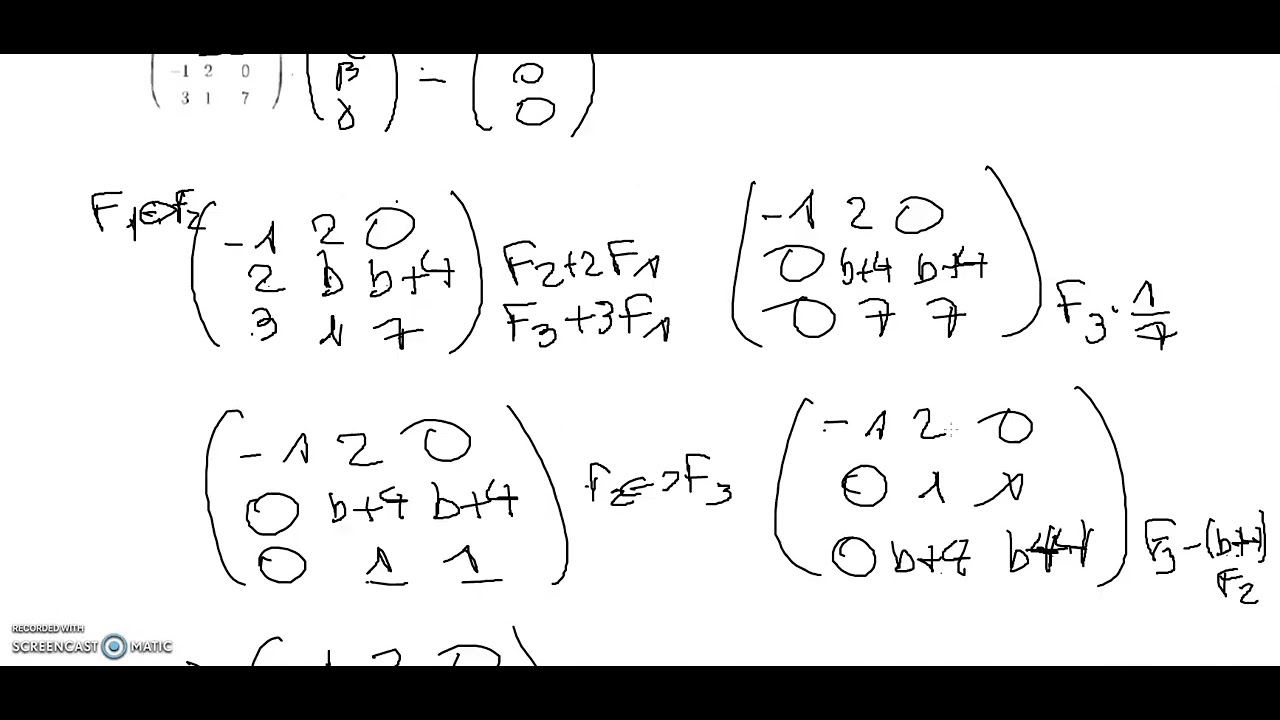 -1 2 0 β = 0
3 1 7 γ 0
F₁↔F₂
-1 2 0
2 b b+4 F₂+2F₁
3 1 7 F₃+3F₁
-1 2 0
0 b+4 b+4
0 7 7 F₃·1/7
-1 2 0
0 b+4 b+4 F₂<->F₃
0 1 1
-1 2 0
0 1 1
0 b+4 b+4 F₃-(b+4)
F₂
RECORDED WITH
SCREENCAST MATIC
2